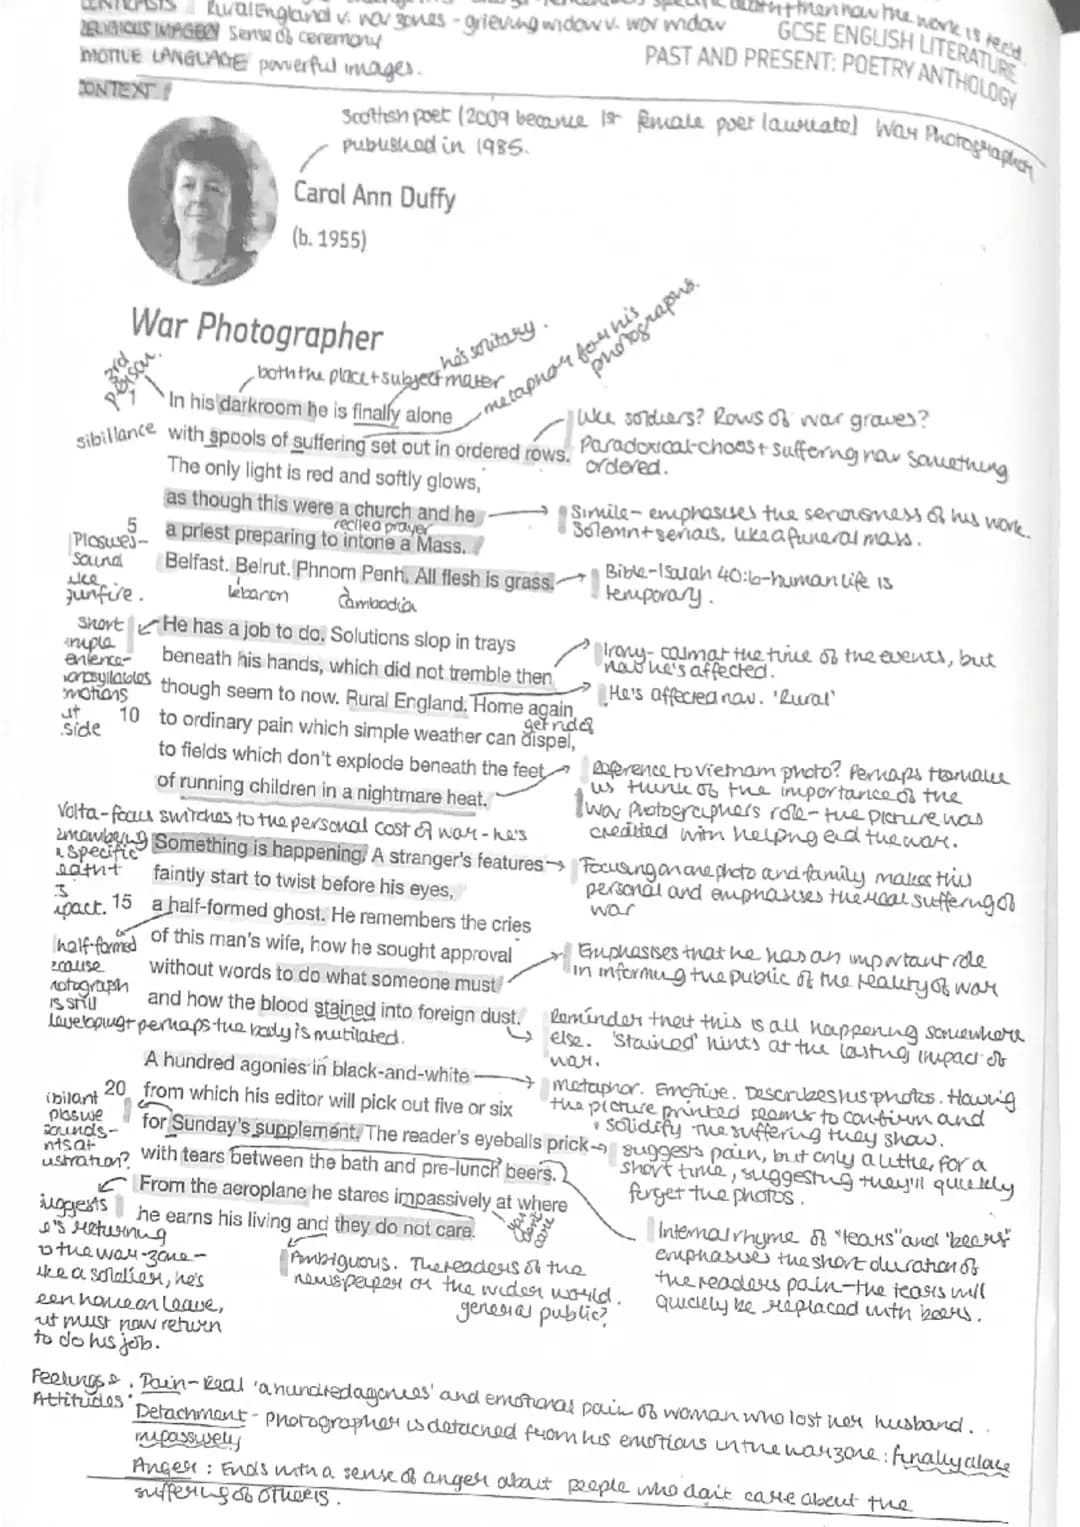 Rural England v. war zones - grieving widow v. war widow
GCSE ENGLISH LITERATURE
RELIGIOUS IMAGERY Sense of ceremony
PAST AND PRESENT: POETRY ANTHOLOGY
EMOTIVE LANGUAGE powerful images.
CONTEXT!
Scottish poet (2009 became 1st female poet laureate) War Photographer
published in 1985.
Carol Ann Duffy
(b. 1955)
War Photographer
3rd person.
he's solitary.
metaphor for his photographs.
both the place + subject matter
1 In his darkroom he is finally alone
Like soldiers? Rows of war graves?
sibillance with spools of suffering set out in ordered rows.
Paradoxical-chaos + suffering now something
ordered.
The only light is red and softly glows,
as though this were a church and he
Simile - emphasises the seriousness of his work.
recite a prayer
Solemn + serious, like a funeral mass.
5 a priest preparing to intone a Mass.
Plosives-
sound
like
gunfire.
Belfast. Beirut. Phnom Penh. All flesh is grass.
Bible-Isaiah 40:6-human life is
temporary.
Lebanon Cambodia
short
He has a job to do. Solutions slop in trays
Irony- calm at the time of the events, but
now he's affected.
beneath his hands, which did not tremble then
though seem to now. Rural England. Home again
He's affected now. 'Rural'
get rid of
10 to ordinary pain which simple weather can dispel,
to fields which don't explode beneath the feet
Reference to Vietnam photo? Perhaps to make
us think of the importance of the
war photographers role - the picture was
credited with helping end the war.
of running children in a nightmare heat.
Volta-focus switches to the personal cost of war - he's
Something is happening. A stranger's features
Focusing on one photo and family makes this
personal and emphasises the real suffering of
war
faintly start to twist before his eyes,
15 a half-formed ghost. He remembers the cries
of this man's wife, how he sought approval
Emphasises that he has an important role
in informing the public of the reality of war
half-formed
without words to do what someone must
is still
and how the blood stained into foreign dust.
developing + perhaps the body is mutilated.
Reminder that this is all happening somewhere
else. 'Stained' hints at the lasting impact of
war.
A hundred agonies in black-and-white
metaphor. Emotive. Describes his photos. Having
the picture printed seems to confirm and
solidify the suffering they show.
20 from which his editor will pick out five or six
for Sunday's supplement. The reader's eyeballs prick
suggests pain, but only a little, for a
short time, suggesting they'll quickly
forget the photos.
with tears between the bath and pre-lunch beers.
From the aeroplane he stares impassively at where
he earns his living and they do not care.
Internal rhyme of "tears" and "beers"
emphasises the short duration of
the readers pain - the tears will
quickly be replaced with beers.
suggests
he's returning
to the war-zone -
like a soldier, he's
been home on leave,
but must now return
to do his job.
Ambiguous. The readers of the
newspaper or the wider world.
general public?
Feelings & Attitudes
Pain - Real 'a hundred agonies' and emotional pain of woman who lost her husband.
Detachment - photographer is detached from his emotions in the warzone: finally alone
impassively
Anger: Ends with a sense of anger about people who don't care about the
suffering of others.